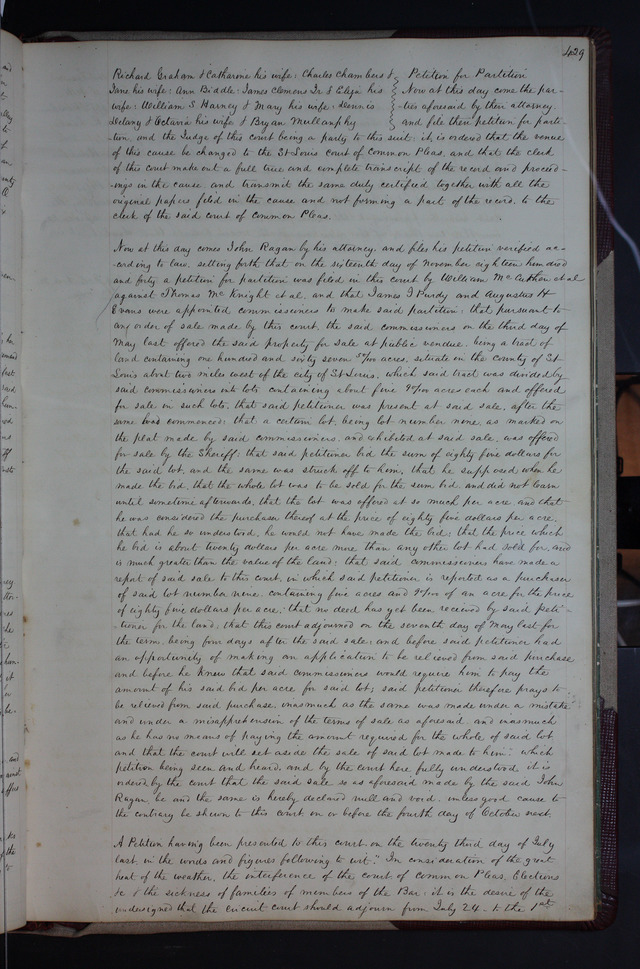 429
Richard Graham & Catharine his wife: Charles Chambers &
Jane his wife: Ann Biddle: James Clemens Jr & Eliza his
wife: William S Harney & Mary his wife: Dennis
Delany & Octavia his wife & Bryan Mullanphy
Petition for Partition
Now at this day come the par-
-ties aforesaid by their attorney
and file their petition for parti-
tion, and the Judge of this court being a party to this suit; it is ordered that the venue
of this cause be changed to the St Louis court of Common Pleas, and that the clerk
of this court make out a full true and complete transcript of the record and proceed-
-ings in the cause and transmit the same duly certified together with all the
original papers filed in the cause and not forming a part of the record, to the
clerk of the said court of Common Pleas.
Now at this day comes John Ragan by his attorney, and files his petition verified ac-
-cording to law, setting forth that on the sixteenth day of November eighteen hundred
and forty a petition for partition was filed in this court by William McArthur et al
against Thomas McKnight et al, and that James J Purdy and Augustus H
Evans were appointed commissioners to make said partition: that pursuant to
any order of sale made by this court, the said commissioners on the third day of
May last offered the said property for sale at public vendue, being a tract of
land containing one hundred and sixty seven /100 acres, situate in the county of St
Louis about two miles west of the city of St Louis, which said tract was divided by
said commissioners into lots, containing about five /100 acres each and offered
for sale in such lots, that said petitioner was present at said sale, after the
same was commenced: that a certain lot, being lot number nine, as marked on
the plat made by said commissioners, and exhibited at said sale, was offered
for sale by the Sheriff, that said petitioner bid the sum of eighty five dollars for
the said lot, and the same was struck off to him, that he supposed when he
made the bid, that the whole lot was to be sold for the sum bid and did not learn
until sometime afterwards, that the lot was offered at so much per acre and that
he was considered the purchaser thereof at the price of eighty five dollars per acre,
that had he so understood, he would not have made the bid: that the price which
he bid is about twenty dollars per acre more than any other lot had sold for, and
is much greater than the value of the land: that said commissioners have made a
report of said sale to this court, in which said petitioner is reported as a purchaser
of said lot number nine containing five acres and /100 of an acre for the price
of eighty five dollars per acre; that no deed has yet been received by said peti-
-tioner for the land, that this court adjourned on the seventh day of May last for
the term, being four days after the said sale; and before said petitioner had
an opportunity of making an application to be relieved from said purchase
and before he knew that said commissioners would require him to pay the
amount of his said bid per acre for said lot; said petitioner therefore prays to
be relieved from said purchase, inasmuch as the same was made under a mistake
and under a misapprehension of the terms of sale as aforesaid and inasmuch
as he has no means of paying the amount required for the whole of said lot
and that the court will set aside the sale of said lot made to him: which
petition being seen and heard, and by the court here fully understood, it is
ordered by the court that the said sale so as aforesaid made by the said John
Ragan be and the same is hereby declared null and void, unless good cause to
the contrary be shewn to this court on or before the fourth day of October next.
A Petition having been presented to this court on the twenty third day of July
last, in the words and figures following to wit: "In consideration of the great
heat of the weather, the interference of the court of common Pleas, Elections
&c & the sickness of families of members of the Bar: it is the desire of the
undersigned that the circuit court should adjourn from July 24. to the 1st